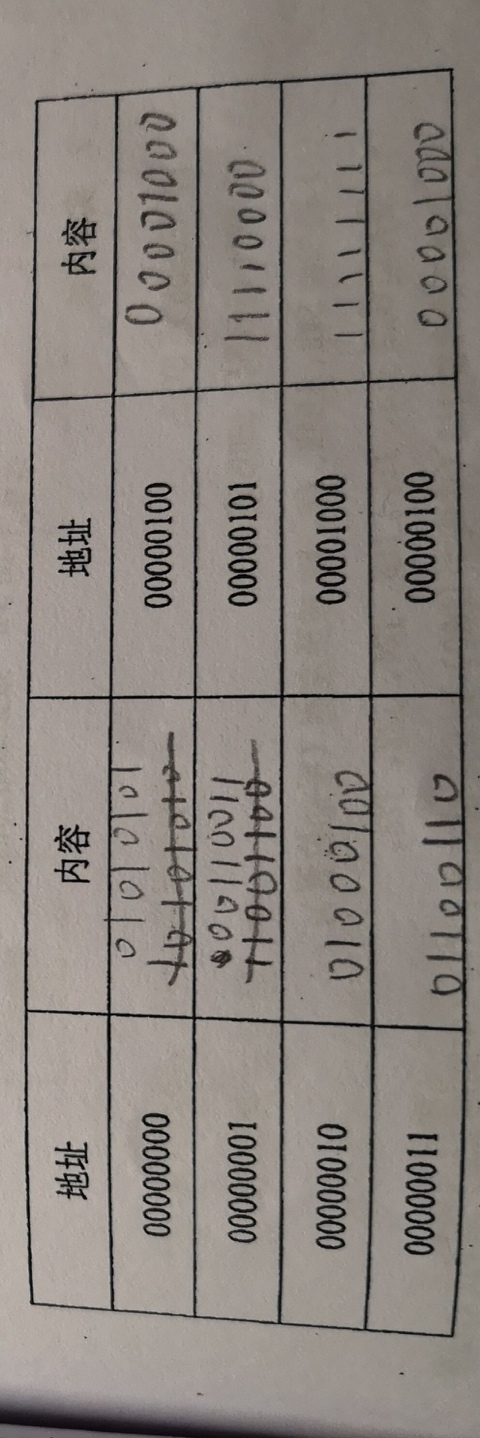 地址 内容 地址 内容
00000000 01010101 00000100 00001000
10101010
00000001 00110011 00000101 11110000
11001100
00000010 01000100 00001000 11111111
00000011 01100110 00000100 00001000